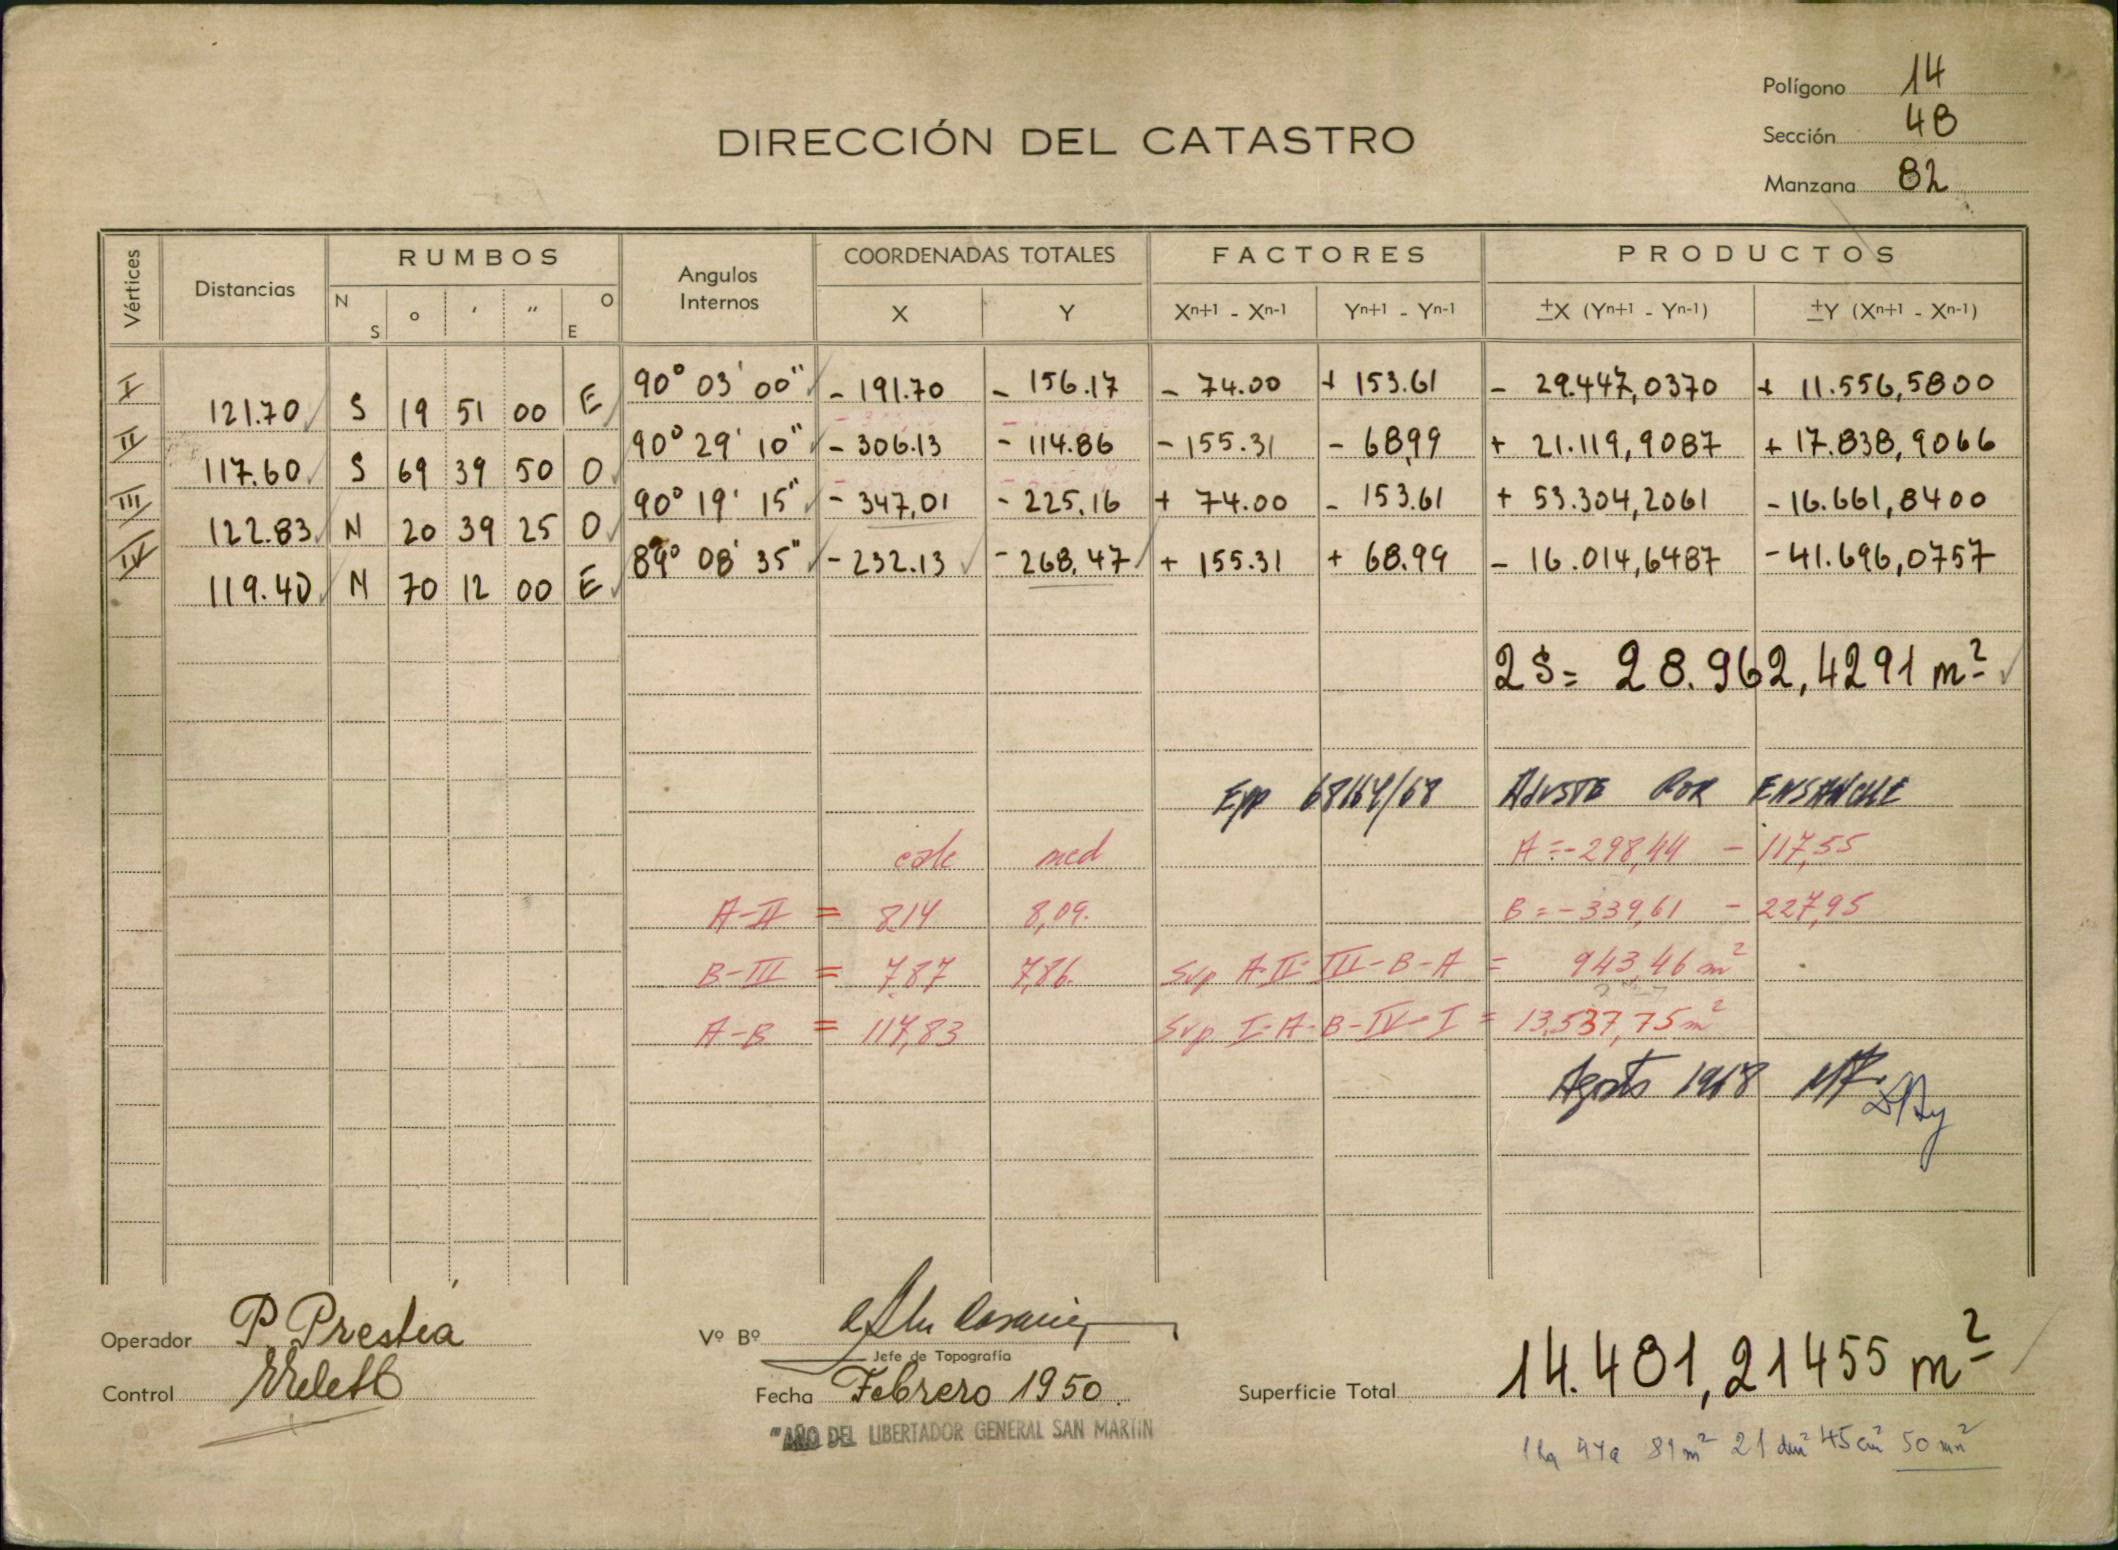 Polígono 14
Sección 48
Manzana 82
DIRECCIÓN DEL CATASTRO
Vértices Distancias RUMBOS Angulos Internos COORDENADAS TOTALES FACTORES PRODUCTOS
N S o ′ ″ O E X Y Xⁿ⁺¹ - Xⁿ⁻¹ Yⁿ⁺¹ - Yⁿ⁻¹ ±X (Yⁿ⁺¹ - Yⁿ⁻¹) ±Y (Xⁿ⁺¹ - Xⁿ⁻¹)
I 90° 03' 00" - 191.70 - 156.17 - 74.00 + 153.61 - 29.447,0370 + 11.556,5800
121.70 S 19 51 00 E
II 90° 29' 10" - 306.13 - 114.86 - 155.31 - 68,99 + 21.119,9087 + 17.838,9066
117.60 S 69 39 50 O
III 90° 19' 15" - 347,01 - 225.16 + 74.00 - 153.61 + 53.304,2061 - 16.661,8400
122.83 N 20 39 25 O
IV 89° 08' 35" - 232.13 - 268.47 + 155.31 + 68.99 - 16.014,6487 - 41.696,0757
119.40 N 70 12 00 E
2S= 28.962,4291 m²
AJUSTE POR ENSANCHE
calc med A = - 298,44 - 117,55
A-II = 8,14 8,09. B = - 339,61 - 227,95
B-III = 7,87 7,86. Sup A-II-III-B-A = 943,46 m²
A-B = 117,83 Sup I-A-B-IV-I = 13.537,75 m²
Agosto 1968
Operador P. Prestia
Vº Bº
Jefe de Topografía
Control
Fecha Febrero 1950.
Superficie Total 14.481,21455 m²
"AÑO DEL LIBERTADOR GENERAL SAN MARTIN
1 Ha 44a 81 m² 21 dm² 45 cm² 50 mm²